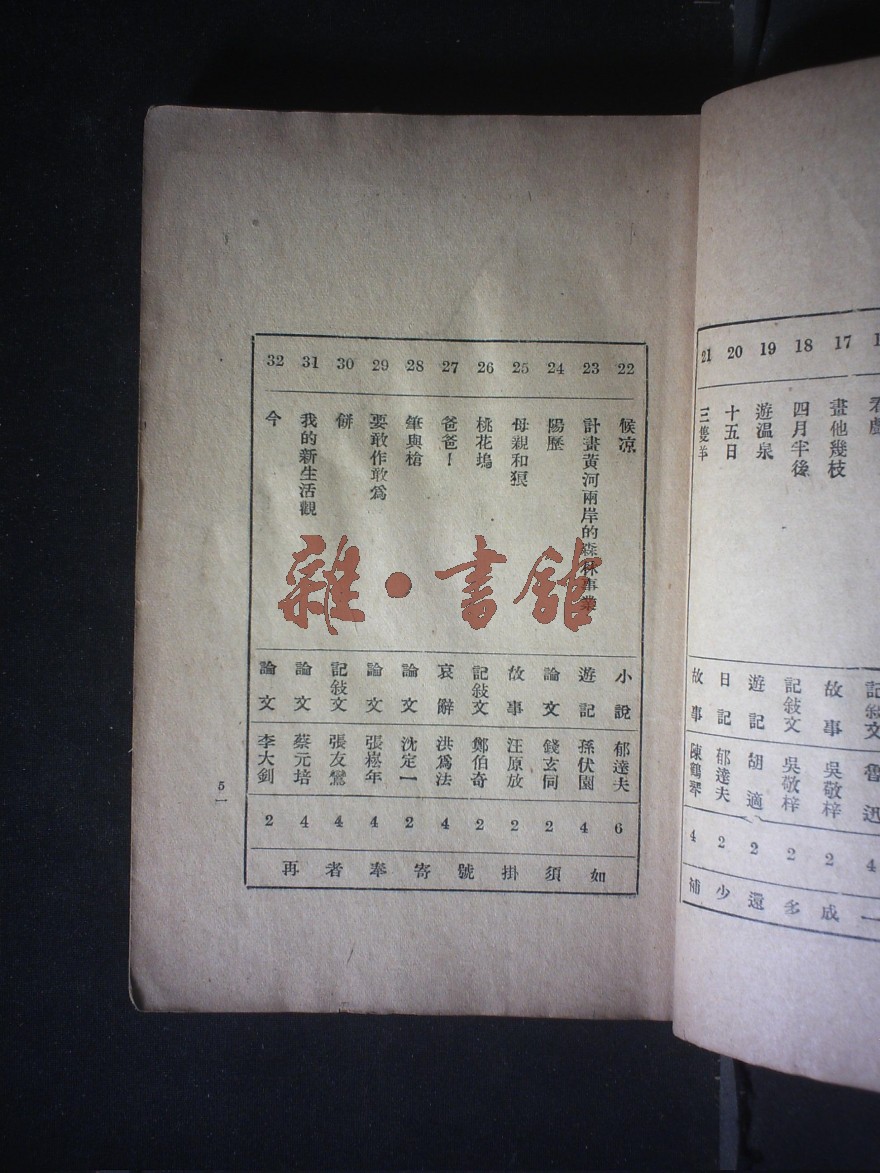 記敍文 魯迅 4
17 畫他幾枝 故事 吳敬梓 2
18 四月半後 記敍文 吳敬梓 2
19 遊温泉 遊記 胡適 2
20 十五日 日記 郁達夫 2
21 三隻羊 故事 陳鶴琴 4
一成多還少補
22 候凉 小說 郁達夫 6
23 計畫黃河兩岸的森林事業 遊記 孫伏園 4
24 陽歷 論文 錢玄同 2
25 母親和狼 故事 汪原放 2
26 桃花塢 記敍文 鄭伯奇 2
27 爸爸！ 哀辭 洪爲法 4
28 筆與槍 論文 沈定一 2
29 要敢作敢爲 論文 張崧年 4
30 餅 記敍文 張友鸞 4
31 我的新生活觀 論文 蔡元培 4
32 今 論文 李大釗 2
如須掛號寄奉者再
5一
雜·書館